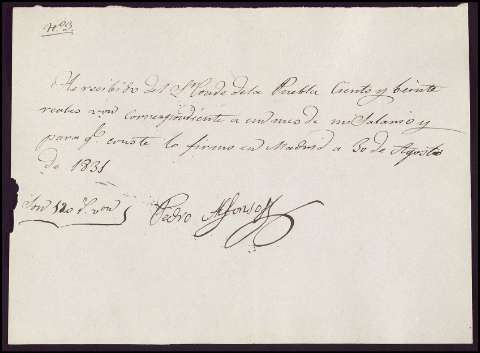 Nº 3
He recibido del Sr Conde de la Puebla Ciento y beinte
reales von correspondiente a un mes de mi Salario y
para q.e conste lo firmo en Madrid a 30 de Agosto
de 1831
Son 120 r.s von
Pedro Alfonso